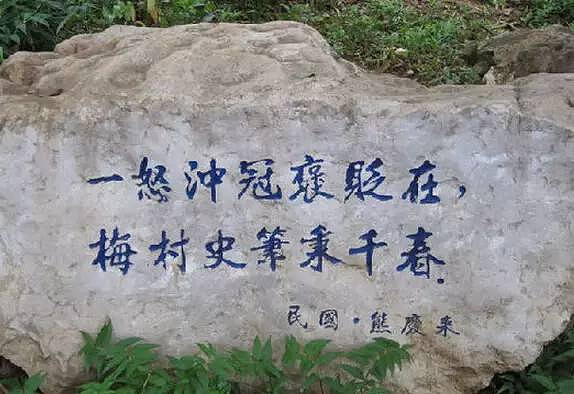 一怒沖冠褒貶在,
梅村史筆秉千春.
民國·熊慶来